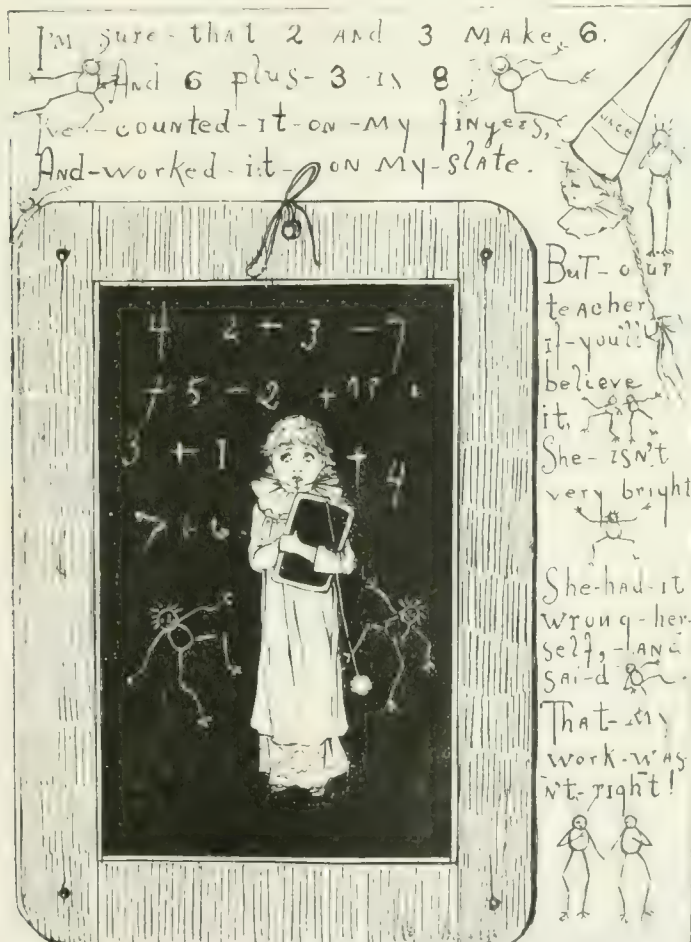 I'm sure-that 2 and 3 make 6.
And 6 plus-3 is 8
I've-counted-it-on-my fingers,
And-worked-it-on my-slate.
But-our
teacher
if-you'll
believe
it,
She-isn't
very bright
She-had-it
wrong-her-
self,-and
sai-d
That-my
work-was
n't-right!
4 2 + 3 - 7
+ 5 - 2 +
3 + 1 + 4
7